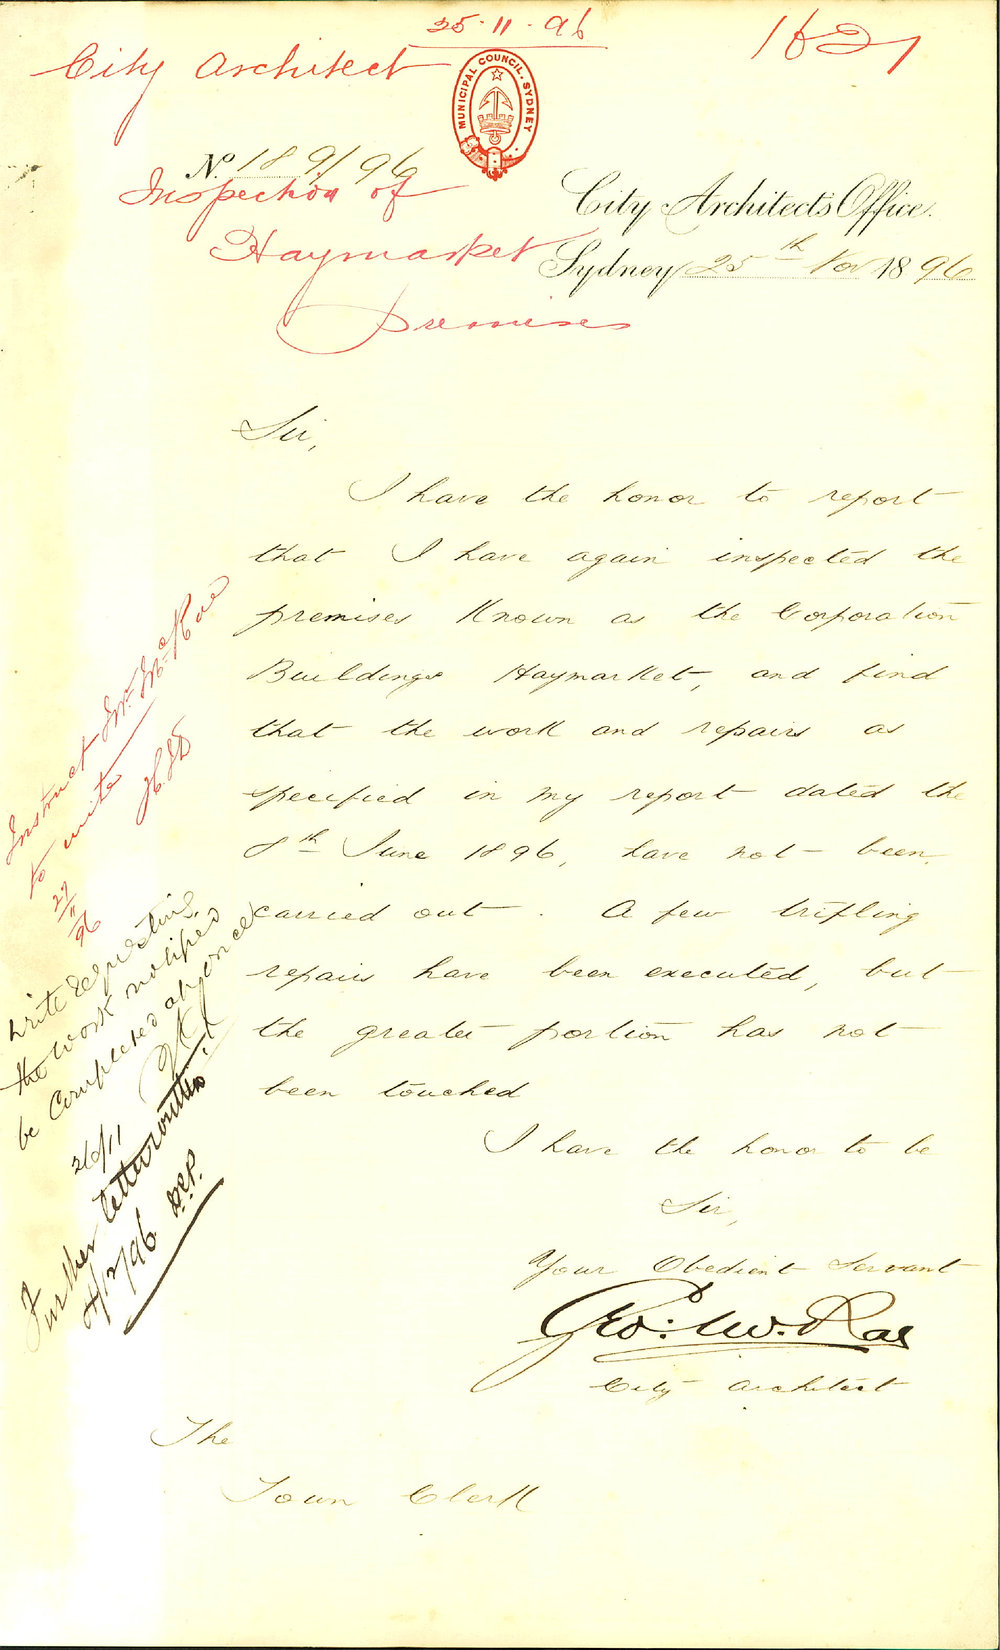 25.11.96
1621
City Architect
MUNICIPAL COUNCIL. SYDNEY
No. 189/96
Inspection of
Haymarket
premises
City Architect's Office.
Sydney 25th Nov 1896
Sir,
I have the honor to report
that I have again inspected the
premises Known as the Corporation
Buildings Haymarket, and find
that the work and repairs as
specified in my report dated the
8th June 1896, have not been
carried out. A few trifling
repairs have been executed, but
the greater portion has not
been touched
I have the honor to be
Sir,
Your Obedient Servant
Geo: McRae
City Architect
The
Town Clerk
Instruct Mr. McRae
to write
27/11/96
Write requesting
the work notified
be completed at once
26/11
Further letter written
4/12/96